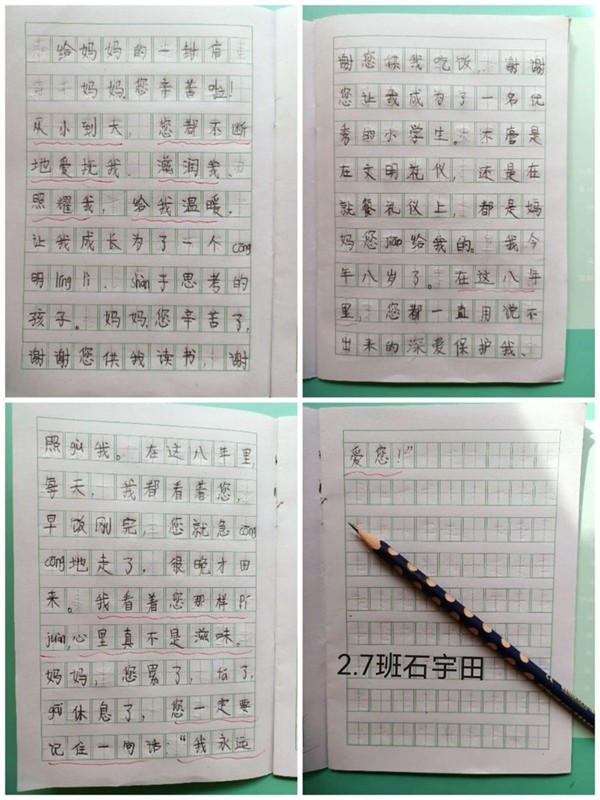 给妈妈的一封信
妈妈,您辛苦啦!
从小到大,您都不断
地爱抚我、滋润我、
照耀我,给我温暖,
让我成长为了一个cōng
明líng lì、shàn于思考的
孩子。妈妈,您辛苦了,
谢谢您供我读书,谢
谢您供我吃饭,谢谢
您让我成为了一名优
秀的小学生。不管是
在文明礼仪,还是在
就餐礼仪上,都是妈
妈您jiāo给我的。我今
年八岁了。在这八年
里,您都一直用说不
出来的深爱保护我、
照gù我。在这八年里,
每天,我都看着您,
早饭刚完,您就急cōng
cōng地走了,很晚才回
来。我看着您那样pí
juàn,心里真不是滋味。
妈妈,您累了,坛了,
gāi休息了,您一定要
记住一句话:“我永远
爱您!”
2.7班石宇田